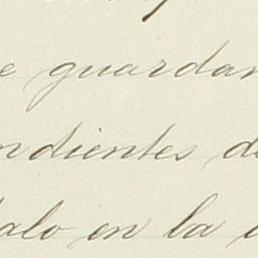 e guardan
ndientes de
alo en la